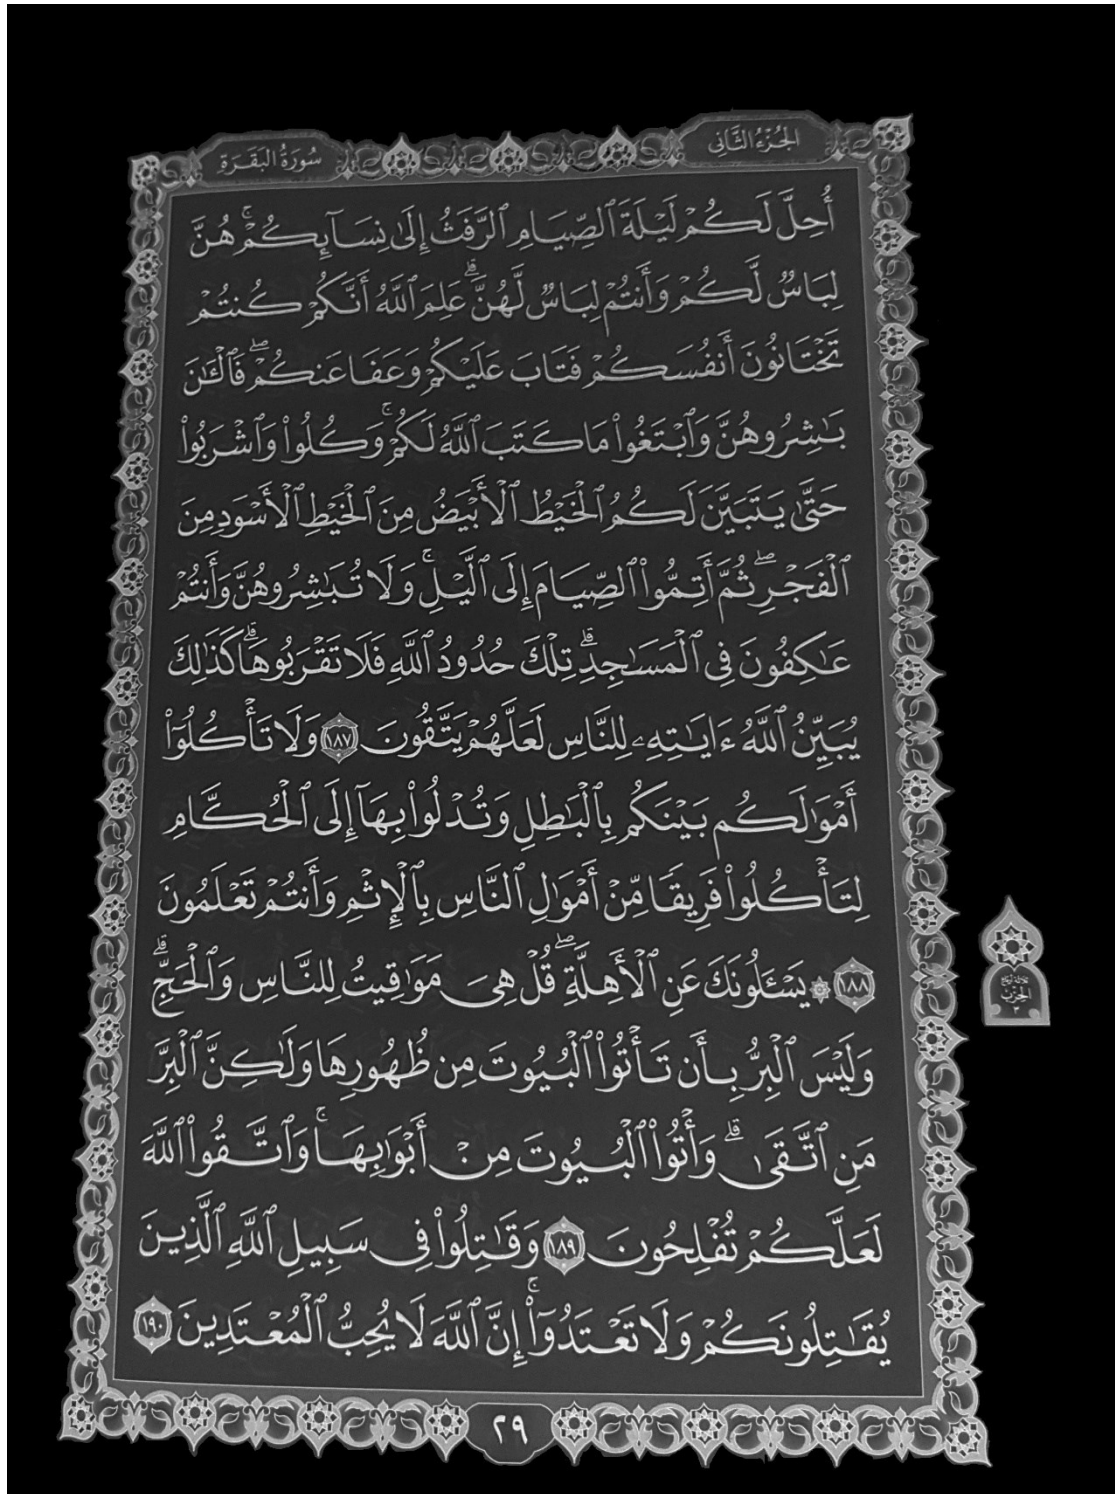 الجُزْءُ الثَّانِي
سُورَةُ البَقَرَةِ
أُحِلَّ لَكُمْ لَيْلَةَ ٱلصِّيَامِ ٱلرَّفَثُ إِلَىٰ نِسَآئِكُمْۚ هُنَّ
لِبَاسٌ لَّكُمْ وَأَنتُمْ لِبَاسٌ لَّهُنَّۗ عَلِمَ ٱللَّهُ أَنَّكُمْ كُنتُمْ
تَخْتَانُونَ أَنفُسَكُمْ فَتَابَ عَلَيْكُمْ وَعَفَا عَنكُمْۖ فَٱلْـَٰٔنَ
بَٰشِرُوهُنَّ وَٱبْتَغُوا۟ مَا كَتَبَ ٱللَّهُ لَكُمْۚ وَكُلُوا۟ وَٱشْرَبُوا۟
حَتَّىٰ يَتَبَيَّنَ لَكُمُ ٱلْخَيْطُ ٱلْأَبْيَضُ مِنَ ٱلْخَيْطِ ٱلْأَسْوَدِ مِنَ
ٱلْفَجْرِۖ ثُمَّ أَتِمُّوا۟ ٱلصِّيَامَ إِلَى ٱلَّيْلِۚ وَلَا تُبَٰشِرُوهُنَّ وَأَنتُمْ
عَٰكِفُونَ فِى ٱلْمَسَٰجِدِۗ تِلْكَ حُدُودُ ٱللَّهِ فَلَا تَقْرَبُوهَاۗ كَذَٰلِكَ
يُبَيِّنُ ٱللَّهُ ءَايَٰتِهِۦ لِلنَّاسِ لَعَلَّهُمْ يَتَّقُونَ ١٨٧ وَلَا تَأْكُلُوٓا۟
أَمْوَٰلَكُم بَيْنَكُم بِٱلْبَٰطِلِ وَتُدْلُوا۟ بِهَآ إِلَى ٱلْحُكَّامِ
لِتَأْكُلُوا۟ فَرِيقًا مِّنْ أَمْوَٰلِ ٱلنَّاسِ بِٱلْإِثْمِ وَأَنتُمْ تَعْلَمُونَ
١٨٨ ۞ يَسْـَٔلُونَكَ عَنِ ٱلْأَهِلَّةِۖ قُلْ هِىَ مَوَٰقِيتُ لِلنَّاسِ وَٱلْحَجِّۗ
وَلَيْسَ ٱلْبِرُّ بِأَن تَأْتُوا۟ ٱلْبُيُوتَ مِن ظُهُورِهَا وَلَٰكِنَّ ٱلْبِرَّ
مَنِ ٱتَّقَىٰۗ وَأْتُوا۟ ٱلْبُيُوتَ مِنْ أَبْوَٰبِهَاۚ وَٱتَّقُوا۟ ٱللَّهَ
لَعَلَّكُمْ تُفْلِحُونَ ١٨٩ وَقَٰتِلُوا۟ فِى سَبِيلِ ٱللَّهِ ٱلَّذِينَ
يُقَٰتِلُونَكُمْ وَلَا تَعْتَدُوٓا۟ۚ إِنَّ ٱللَّهَ لَا يُحِبُّ ٱلْمُعْتَدِينَ ١٩٠
الحِزْبُ
٣
٢٩